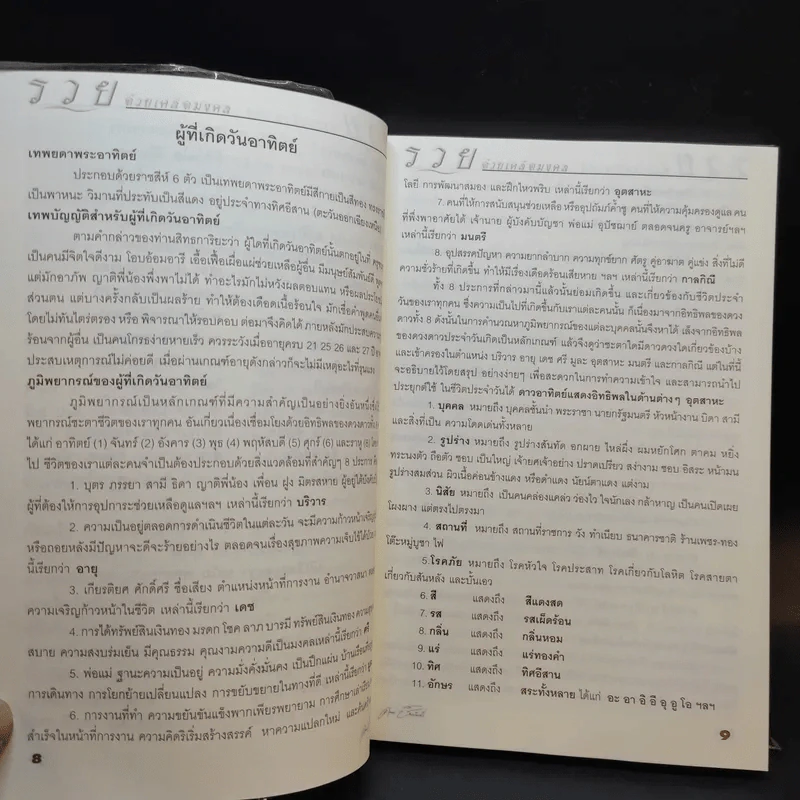 รวย
ด้วยเคล็ดมงคล
ผู้ที่เกิดวันอาทิตย์
เทพยดาพระอาทิตย์
ประกอบด้วยราชสีห์ 6 ตัว เป็นเทพยดาพระอาทิตย์มีสีกายเป็นสีทอง
เป็นพาหนะ วิมานที่ประทับเป็นสีแดง อยู่ประจำทางทิศอีสาน (ตะวันออกเฉียงเหนือ)
เทพบัญญัติสำหรับผู้ที่เกิดวันอาทิตย์
ตามคำกล่าวของท่านสิทธการิยะว่า ผู้ใดที่เกิดวันอาทิตย์นั้นตกอยู่ในที่
เป็นคนมีจิตใจดีงาม โอบอ้อมอารี เอื้อเฟื้อเผื่อแผ่ช่วยเหลือผู้อื่น มีมนุษย์สัมพันธ์ดี
แต่มักอาภัพ ญาติพี่น้องพึ่งพาไม่ได้ ทำอะไรมักไม่หวังผลตอบแทน หรือผลประโยชน์
ส่วนตน แต่บางครั้งกลับเป็นผลร้าย ทำให้ต้องเดือดเนื้อร้อนใจ มักเชื่อคำพูดคนอื่น
โดยไม่ทันไตร่ตรอง หรือ พิจารณาให้รอบคอบ ต่อมาจึงคิดได้ ภายหลังมักประสบความ
ร้อนจากผู้อื่น เป็นคนโกรธง่ายหายเร็ว ควรระวังเมื่ออายุครบ 21 25 26 และ 27 ปี
ประสบเหตุการณ์ไม่ค่อยดี เมื่อผ่านเกณฑ์อายุดังกล่าวก็จะไม่มีเหตุอะไรที่รุนแรง
ภูมิพยากรณ์ของผู้ที่เกิดวันอาทิตย์
ภูมิพยากรณ์เป็นหลักเกณฑ์ที่มีความสำคัญเป็นอย่างยิ่งอันหนึ่งซึ่ง
พยากรณ์ชะตาชีวิตของเราทุกคน อันเกี่ยวเนื่องเชื่อมโยงด้วยอิทธิพลของดวงดาว
ได้แก่ อาทิตย์ (1) จันทร์ (2) อังคาร (3) พุธ (4) พฤหัสบดี (5) ศุกร์ (6) และราหู (8)
ไป ชีวิตของเราแต่ละคนจำเป็นต้องประกอบด้วยสิ่งแวดล้อมที่สำคัญๆ 8 ประการ
1. บุตร ภรรยา สามี ธิดา ญาติพี่น้อง เพื่อน ฝูง มิตรสหาย ผู้อยู่ใต้บังคับ
ผู้ที่ต้องให้การอุปการะช่วยเหลือดูแลฯลฯ เหล่านี้เรียกว่า บริวาร
2. ความเป็นอยู่ตลอดการดำเนินชีวิตในแต่ละวัน จะมีความก้าวหน้าเจริญ
หรือถอยหลังมีปัญหาจะดีจะร้ายอย่างไร ตลอดจนเรื่องสุขภาพความเจ็บไข้ได้ป่วย
นี้เรียกว่า อายุ
3. เกียรติยศ ศักดิ์ศรี ชื่อเสียง ตำแหน่งหน้าที่การงาน อำนาจวาสนา
ความเจริญก้าวหน้าในชีวิต เหล่านี้เรียกว่า เดช
4. การได้ทรัพย์สินเงินทอง มรดก โชค ลาภ บารมี ทรัพย์สินเงินทอง
สบาย ความสงบร่มเย็น มีคุณธรรม คุณงามความดีเป็นมงคลเหล่านี้เรียกว่า ศรี
5. พ่อแม่ ฐานะความเป็นอยู่ ความมั่งคั่งมั่นคง เป็นปึกแผ่น บ้านเรือนที่อยู่
การเดินทาง การโยกย้ายเปลี่ยนแปลง การขยับขยายในทางที่ดี เหล่านี้เรียกว่า
6. การงานที่ทำ ความขยันขันแข็งพากเพียรพยายาม การศึกษาเล่าเรียน
สำเร็จในหน้าที่การงาน ความคิดริเริ่มสร้างสรรค์ หาความแปลกใหม่
8
รวย
ด้วยเคล็ดมงคล
โลยี การพัฒนาสมอง และฝึกไหวพริบ เหล่านี้เรียกว่า อุตสาหะ
7. คนที่ให้การสนับสนุนช่วยเหลือ หรืออุปถัมภ์ค้ำชู คนที่ให้ความคุ้มครองดูแล คน
ที่พึ่งพาอาศัยได้ เจ้านาย ผู้บังคับบัญชา พ่อแม่ อุปัชฌาย์ ตลอดจนครู อาจารย์ฯลฯ
เหล่านี้เรียกว่า มนตรี
8. อุปสรรคปัญหา ความยากลำบาก ความทุกข์ยาก ศัตรู คู่อาฆาต คู่แข่ง สิ่งที่ไม่ดี
ความชั่วร้ายที่เกิดขึ้น ทำให้มีเรื่องเดือดร้อนเสียหาย ฯลฯ เหล่านี้เรียกว่า กาลกิณี
ทั้ง 8 ประการที่กล่าวมานี้แล้วนั้นย่อมเกิดขึ้น และเกี่ยวข้องกับชีวิตประจำ
วันของเราทุกคน ซึ่งความเป็นไปที่เกิดขึ้นกับเราแต่ละคนนั้น ก็เนื่องมาจากอิทธิพลของดวง
ดาวทั้ง 8 ดังนั้นในการคำนวณหาภูมิพยากรณ์ของแต่ละบุคคลนั้นจึงหาได้ เล็งจากอิทธิพล
ของดวงดาวประจำวันเกิดเป็นหลักเกณฑ์ แล้วจึงดูว่าชะตาใดมีดาวดวงใดเกี่ยวข้องบ้าง
และเข้าครองในตำแหน่ง บริวาร อายุ เดช ศรี มูละ อุตสาหะ มนตรี และกาลกิณี แต่ในที่นี้
จะอธิบายไว้โดยสรุป อย่างง่ายๆ เพื่อสะดวกในการทำความเข้าใจ และสามารถนำไป
ประยุกต์ใช้ ในชีวิตประจำวันได้ ดาวอาทิตย์แสดงอิทธิพลในด้านต่างๆ อุตสาหะ
1. บุคคล หมายถึง บุคคลชั้นนำ พระราชา นายกรัฐมนตรี หัวหน้างาน บิดา สามี
และสิ่งที่มีความโดดเด่นทั้งหลาย
2. รูปร่าง หมายถึง รูปร่างสันทัด อกผาย ไหล่ผึ่ง ผมหยักโศก ตาคม หยิ่ง
ทระนงตัว ถือตัว ชอบ เป็นใหญ่ เจ้ายศเจ้าอย่าง ปราดเปรียว สง่างาม ชอบ อิสระ หน้ามน
รูปร่างสมส่วน ผิวเนื้อค่อนข้างแดง หรือดำแดง นัยน์ตาแดง แต่งาม
3. นิสัย หมายถึง เป็นคนคล่องแคล่ว ว่องไว ใจนักเลง กล้าหาญ เป็นคนเปิดเผย
โผงผาง แต่ตรงไปตรงมา
4. สถานที่ หมายถึง สถานที่ราชการ วัง ทำเนียบ ธนาคารชาติ ร้านเพชร-ทอง
โต๊ะหมู่บูชา ไฟ
5.โรคภัย หมายถึง โรคหัวใจ โรคประสาท โรคเกี่ยวกับโลหิต โรคสายตา
เกี่ยวกับสันหลัง และบั้นเอว
6. สี แสดงถึง สีแดงสด
7. รส แสดงถึง รสเผ็ดร้อน
8. กลิ่น แสดงถึง กลิ่นหอม
9. แร่ แสดงถึง แร่ทองคำ
10. ทิศ แสดงถึง ทิศอีสาน
11. อักษร แสดงถึง สระทั้งหลาย ได้แก่ อะ อา อิ อี อุ อู โอ ฯลฯ
9